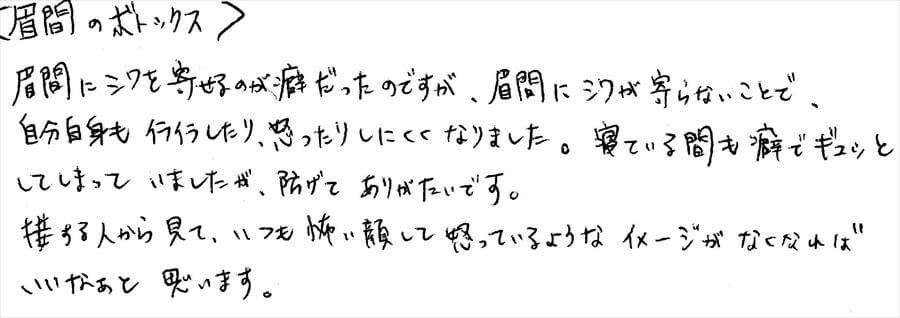 〈眉間のボトックス〉
眉間にシワを寄せるのが癖だったのですが、眉間にシワが寄らないことで、
自分自身もイライラしたり、怒ったりしにくくなりました。寝ている間も癖でギュッと
してしまっていましたが、防げてありがたいです。
接する人から見て、いつも怖い顔して怒っているようなイメージがなくなれば
いいなぁと思います。